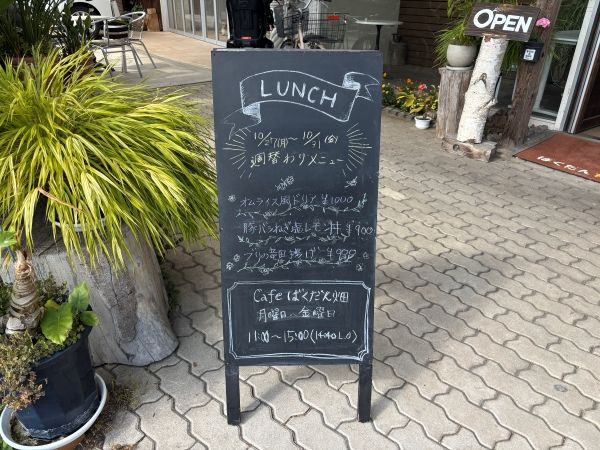 OPEN
LUNCH
10/27(月)〜10/31(金)
週替わりメニュー
オムライス風ドリア ¥1000
豚バラねぎ塩レモン丼 ¥900
ブリの竜田揚げ ¥900
Cafe ばくだん畑
月曜日〜金曜日
11:00〜15:00(14:40 L.O)
ばくだん